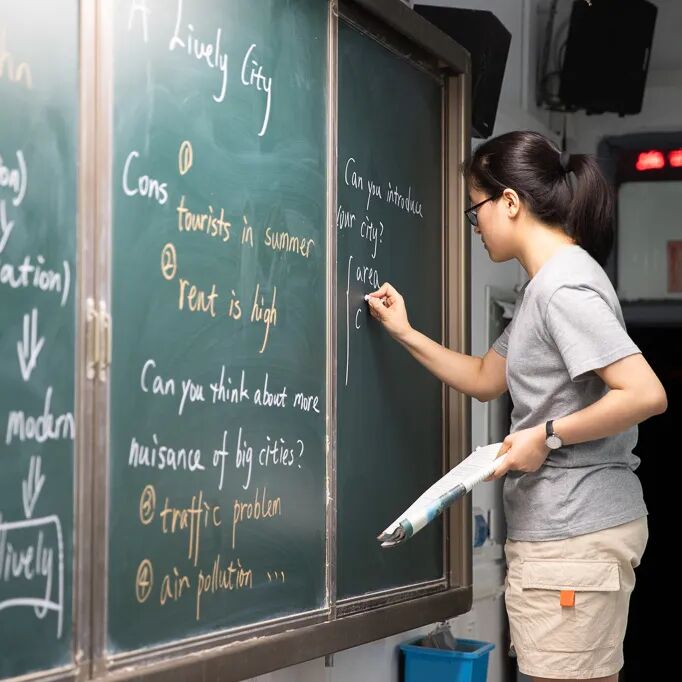 modern
lively
A Lively City
Cons ①
tourists in summer
②
rent is high
Can you think about more
nuisance of big cities?
③ traffic problem
④ air pollution ...
Can you introduce
your city?
area
c